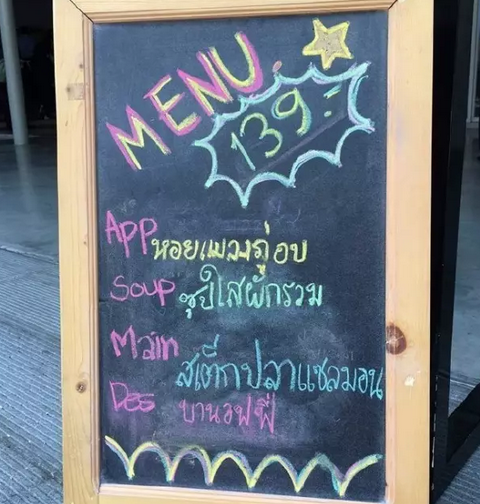 MENU
139.-
App หอยแมลงภู่อบ
Soup ซุปใสผักรวม
Main สเต็กปลาแซลมอน
Des บานอฟฟี่